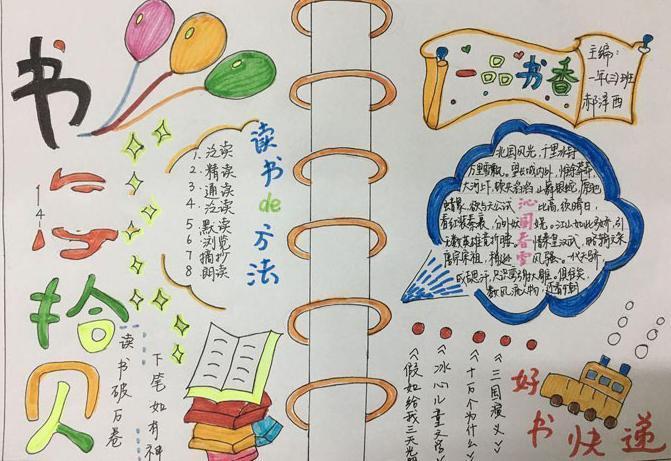 书心拾贝
读书de方法
1、泛读
2 精读
3 通读
4 泛读
5 默读
6 浏览
7 摘抄
8 朗读
读书破万卷
下笔如有神
一品书香
主编:
一年(三)班
郝泽西
沁园春雪
北国风光，千里冰封
万里雪飘。望长城内外，惟余莽莽，
大河上下，顿失滔滔。山舞银蛇，原驰
蜡象，欲与天公试比高，须晴日，
看红装素裹，分外妖娆。江山如此多娇，引
无数英雄竞折腰。惜秦皇汉武，略输文采
唐宗宋祖，稍逊风骚。一代天骄，
成吉思汗，只识弯弓射大雕。俱往矣，
数风流人物，还看今朝
《三国演义》
《十万个为什么》
《冰心儿童文
《假如给我三天光明
好书快递